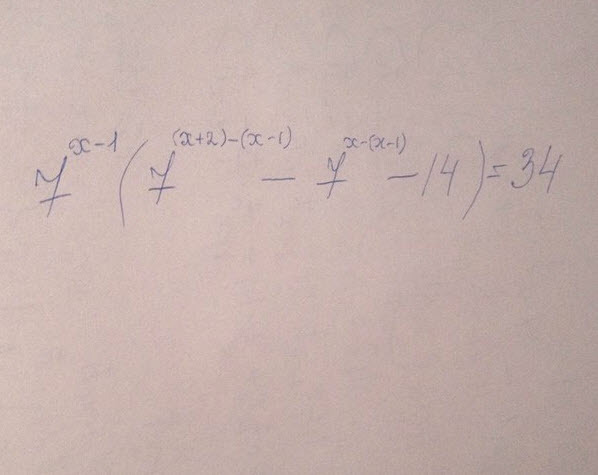 7^{x-1} (7^{(x+2)-(x-1)} - 7^{x-(x-1)} - 14) = 34